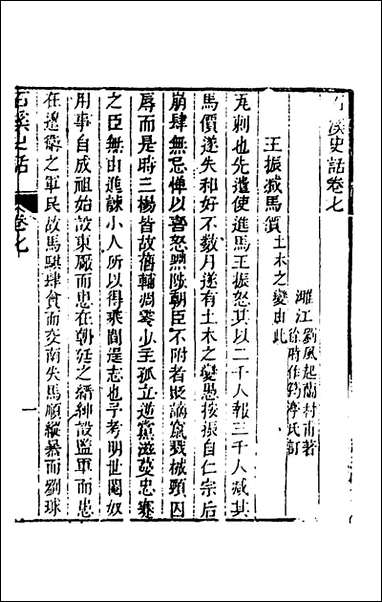 石溪史話卷七
濉江劉風起蘭村甫著
徐時作筠亭氏訂
王振減馬價土木之變由此
瓦剌也先遣使進馬王振怒其以二千人報三千人减其
馬價遂失和好不數月遂有土木之變愚按振自仁宗后
崩肆無忌憚以喜怒黜陟朝臣不附者貶謫竄戮械頸囚
辱而是時三楊皆故舊輔凋喪少主孤立逆黨滋蔓忠蹇
之臣無由進諫小人所以得乘間逞志也予考明世閹奴
用事自成祖始設東厰而患在朝廷之縉紳設監軍而患
在邊徼之軍民故馬騏肆貪而交南失馬順縱暴而劉球
石溪史話
卷七
一